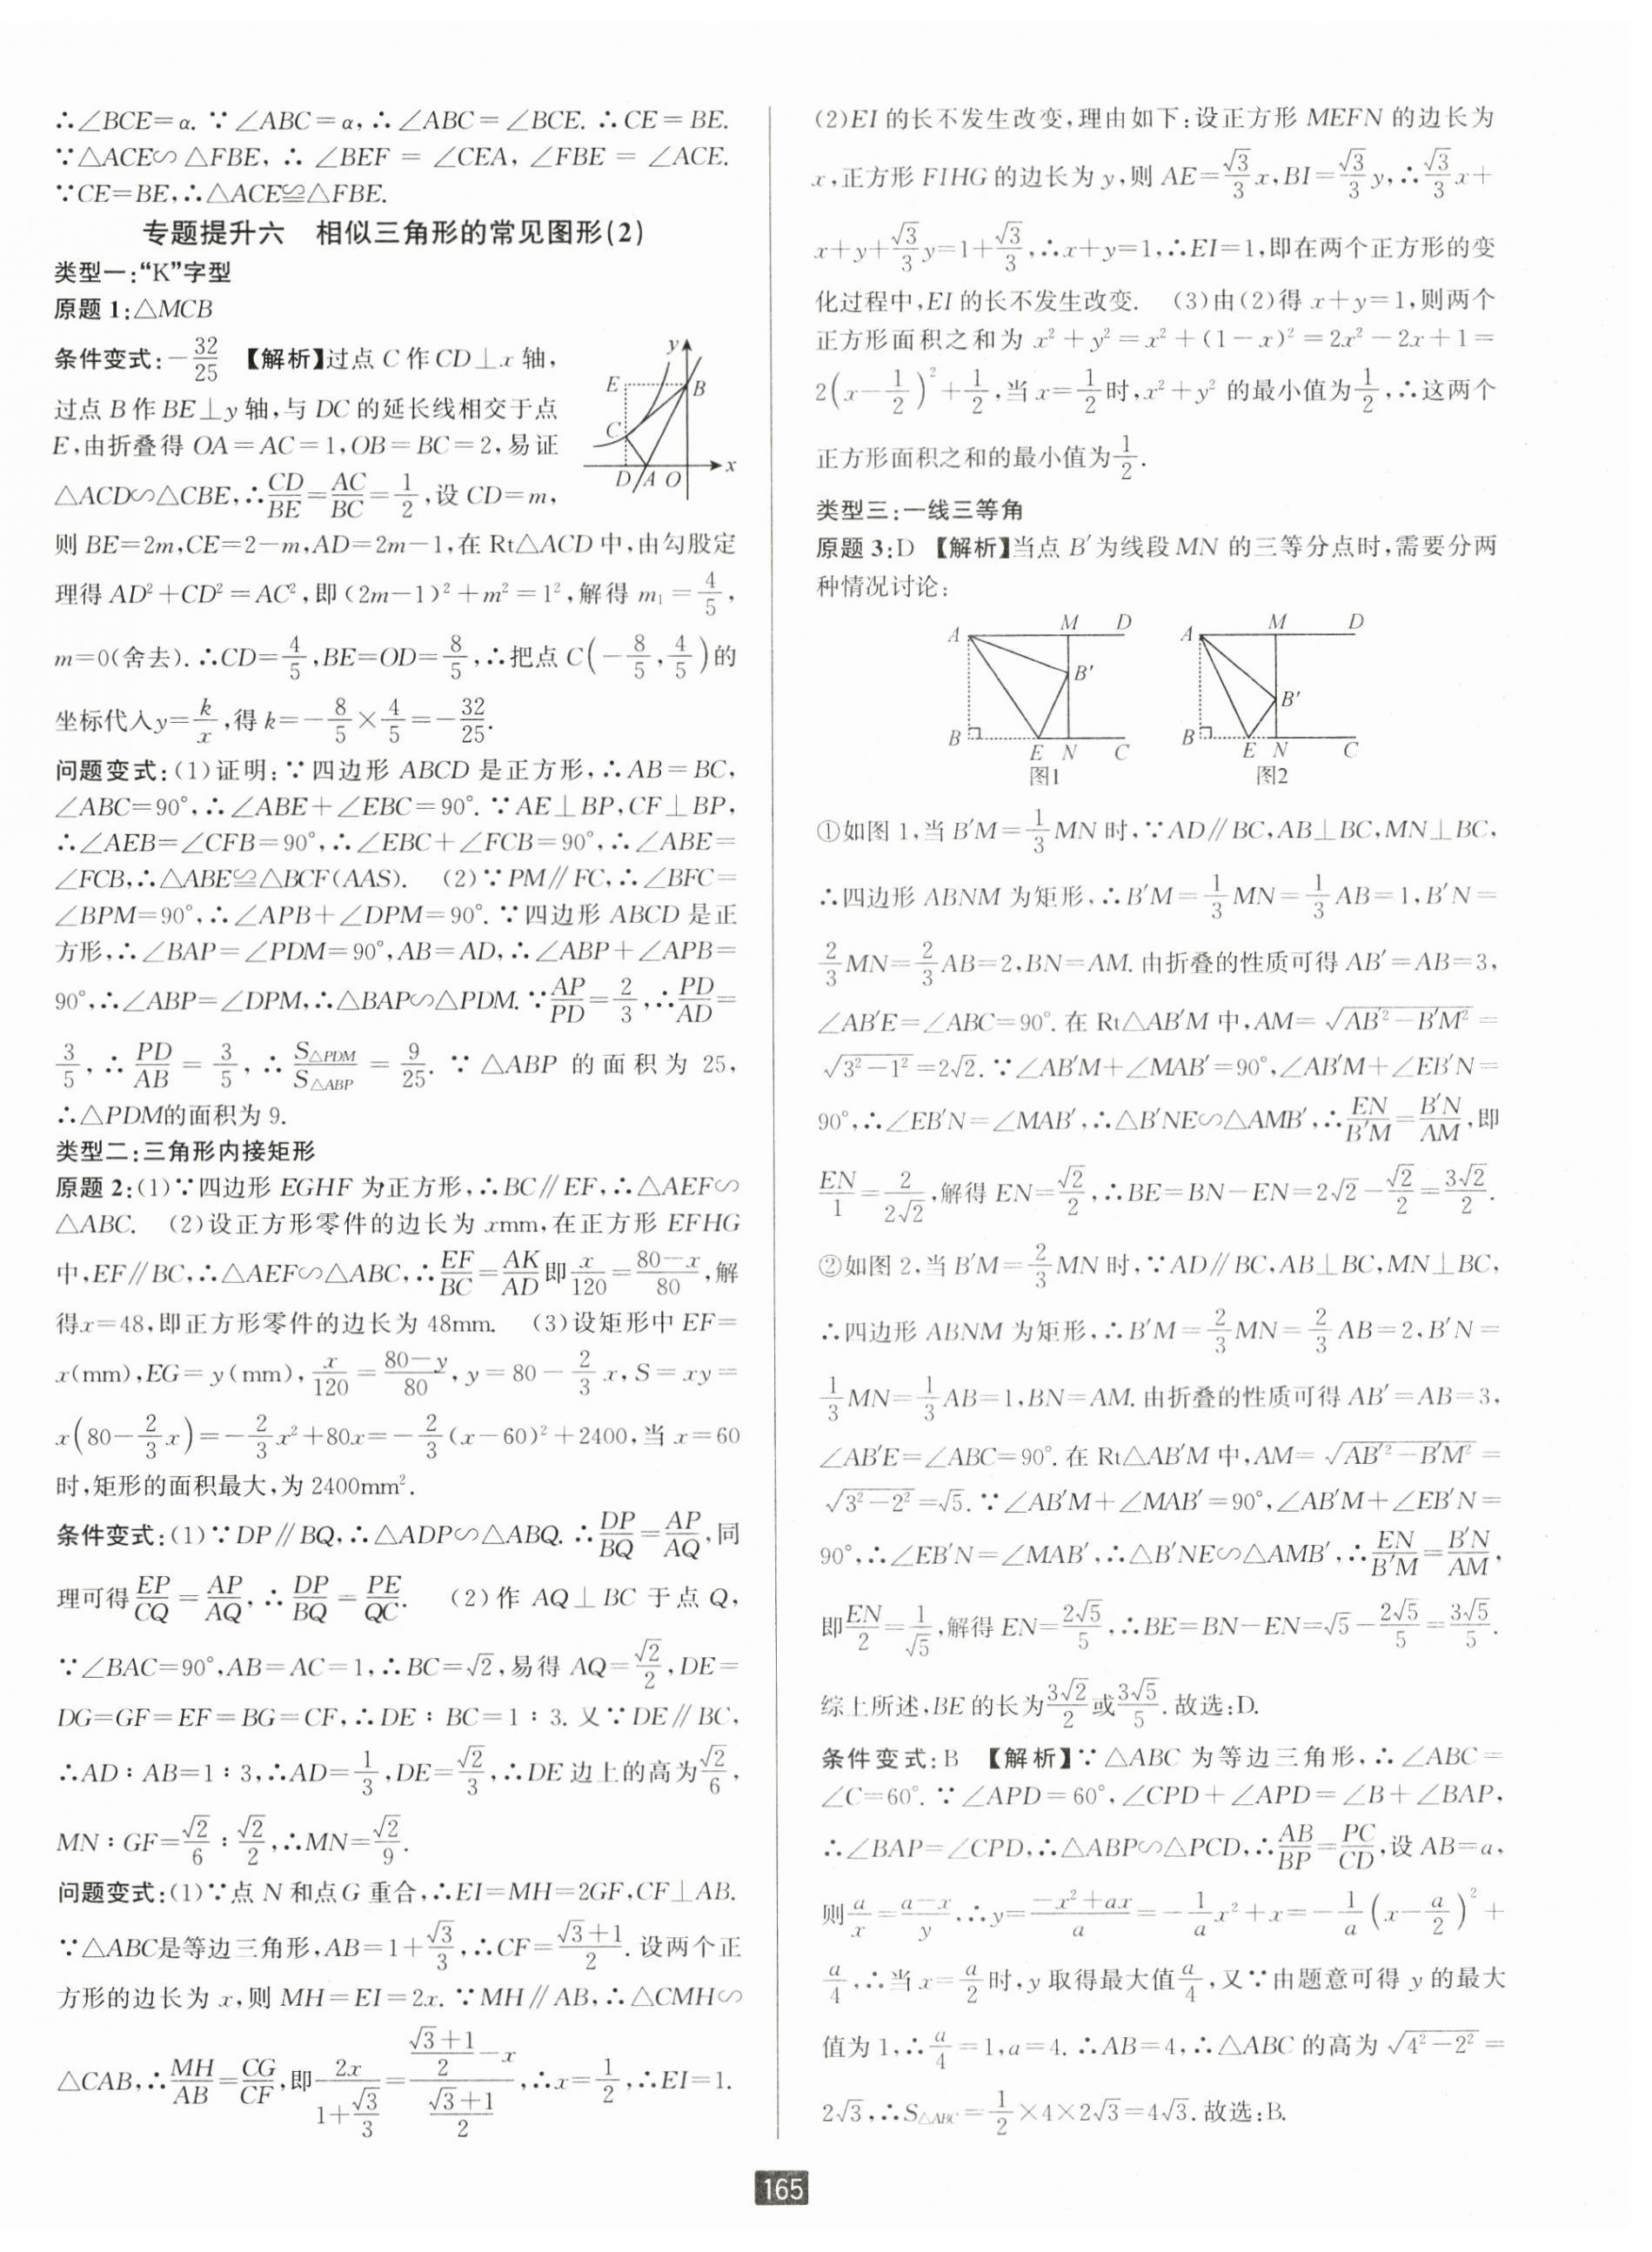 ∴∠BCE=α. ∵∠ABC=α,∴∠ABC=∠BCE. ∴CE=BE.
∵△ACE∽△FBE, ∴ ∠BEF = ∠CEA, ∠FBE = ∠ACE.
∵CE=BE,∴△ACE≌△FBE.
专题提升六 相似三角形的常见图形(2)
类型一:“K”字型
原题1:△MCB
条件变式:-32/25 【解析】过点C作CD⊥x轴,
过点B作BE⊥y轴,与DC的延长线相交于点
E,由折叠得OA=AC=1,OB=BC=2,易证
△ACD∽△CBE,∴CD/BE=AC/BC=1/2,设CD=m,
y
E
B
C
D A O
x
则BE=2m,CE=2-m,AD=2m-1,在Rt△ACD中,由勾股定
理得AD²+CD²=AC²,即(2m-1)²+m²=1²,解得m₁=4/5,
m=0(舍去). ∴CD=4/5,BE=OD=8/5,∴把点C(-8/5,4/5)的
坐标代入y=k/x,得k=-8/5×4/5=-32/25.
问题变式:(1)证明:∵四边形ABCD是正方形,∴AB=BC,
∠ABC=90°,∴∠ABE+∠EBC=90°. ∵AE⊥BP,CF⊥BP,
∴∠AEB=∠CFB=90°,∴∠EBC+∠FCB=90°,∴∠ABE=
∠FCB,∴△ABE≌△BCF(AAS). (2)∵PM∥FC,∴∠BFC=
∠BPM=90°,∴∠APB+∠DPM=90°. ∵四边形ABCD是正
方形,∴∠BAP=∠PDM=90°,AB=AD,∴∠ABP+∠APB=
90°,∴∠ABP=∠DPM,∴△BAP∽△PDM. ∵AP/PD=2/3,∴PD/AD=
3/5, ∴ PD/AB = 3/5, ∴ S△PDM/S△ABP = 9/25. ∵ △ABP 的面积为 25,
∴△PDM的面积为9.
类型二:三角形内接矩形
原题2:(1)∵四边形EGHF为正方形,∴BC∥EF,∴△AEF∽
△ABC. (2)设正方形零件的边长为xmm,在正方形EFHG
中,EF∥BC,∴△AEF∽△ABC,∴EF/BC=AK/AD即x/120=(80-x)/80,解
得x=48,即正方形零件的边长为48mm. (3)设矩形中EF=
x(mm),EG=y(mm),x/120=(80-y)/80,y=80-2/3x,S=xy=
x(80-2/3x)=-2/3x²+80x=-2/3(x-60)²+2400,当x=60
时,矩形的面积最大,为2400mm².
条件变式:(1)∵DP∥BQ,∴△ADP∽△ABQ. ∴DP/BQ=AP/AQ,同
理可得EP/CQ=AP/AQ,∴DP/BQ=PE/QC. (2)作AQ⊥BC于点Q,
∵∠BAC=90°,AB=AC=1,∴BC=√2,易得AQ=√2/2,DE=
DG=GF=EF=BG=CF,∴DE∶BC=1∶3. 又∵DE∥BC,
∴AD∶AB=1∶3,∴AD=1/3,DE=√2/3,∴DE边上的高为√2/6,
MN∶GF=√2/6∶√2/2,∴MN=√2/9.
问题变式:(1)∵点N和点G重合,∴EI=MH=2GF,CF⊥AB.
∵△ABC是等边三角形,AB=1+√3/3,∴CF=(√3+1)/2. 设两个正
方形的边长为x,则MH=EI=2x. ∵MH∥AB,∴△CMH∽
△CAB,∴MH/AB=CG/CF,即2x/(1+√3/3)=((√3+1)/2-x)/((√3+1)/2),∴x=1/2,∴EI=1.
(2)EI的长不发生改变,理由如下:设正方形MEFN的边长为
x,正方形FIHG的边长为y,则AE=√3/3x,BI=√3/3y,∴√3/3x+
x+y+√3/3y=1+√3/3,∴x+y=1,∴EI=1,即在两个正方形的变
化过程中,EI的长不发生改变. (3)由(2)得x+y=1,则两个
正方形面积之和为x²+y²=x²+(1-x)²=2x²-2x+1=
2(x-1/2)²+1/2,当x=1/2时,x²+y²的最小值为1/2,∴这两个
正方形面积之和的最小值为1/2.
类型三:一线三等角
原题3:D 【解析】当点B′为线段MN的三等分点时,需要分两
种情况讨论:
A M D
B′
B E N C
图1
A M D
B′
B E N C
图2
①如图1,当B′M=1/3MN时,∵AD∥BC,AB⊥BC,MN⊥BC,
∴四边形ABNM为矩形,∴B′M=1/3MN=1/3AB=1,B′N=
2/3MN=2/3AB=2,BN=AM. 由折叠的性质可得AB′=AB=3,
∠AB′E=∠ABC=90°. 在Rt△AB′M中,AM=√(AB′²-B′M²)=
√(3²-1²)=2√2. ∵∠AB′M+∠MAB′=90°,∠AB′M+∠EB′N=
90°,∴∠EB′N=∠MAB′,∴△B′NE∽△AMB′,∴EN/B′M=B′N/AM,即
EN/1=2/(2√2),解得EN=√2/2,∴BE=BN-EN=2√2-√2/2=3√2/2.
②如图2,当B′M=2/3MN时,∵AD∥BC,AB⊥BC,MN⊥BC,
∴四边形ABNM为矩形,∴B′M=2/3MN=2/3AB=2,B′N=
1/3MN=1/3AB=1,BN=AM. 由折叠的性质可得AB′=AB=3,
∠AB′E=∠ABC=90°. 在Rt△AB′M中,AM=√(AB′²-B′M²)=
√(3²-2²)=√5. ∵∠AB′M+∠MAB′=90°,∠AB′M+∠EB′N=
90°,∴∠EB′N=∠MAB′,∴△B′NE∽△AMB′,∴EN/B′M=B′N/AM,
即EN/2=1/√5,解得EN=2√5/5,∴BE=BN-EN=√5-2√5/5=3√5/5.
综上所述,BE的长为3√2/2或3√5/5. 故选:D.
条件变式:B 【解析】∵△ABC为等边三角形,∴∠ABC=
∠C=60°. ∵∠APD=60°,∠CPD+∠APD=∠B+∠BAP,
∴∠BAP=∠CPD,∴△ABP∽△PCD,∴AB/BP=PC/CD,设AB=a,
则a/x=(a-x)/y,∴y=(-x²+ax)/a=-1/a x²+x=-1/a(x-a/2)²+
a/4,∴当x=a/2时,y取得最大值a/4,又∵由题意可得y的最大
值为1,∴a/4=1,a=4. ∴AB=4,∴△ABC的高为√(4²-2²)=
2√3,∴S△ABC=1/2×4×2√3=4√3. 故选:B.
165